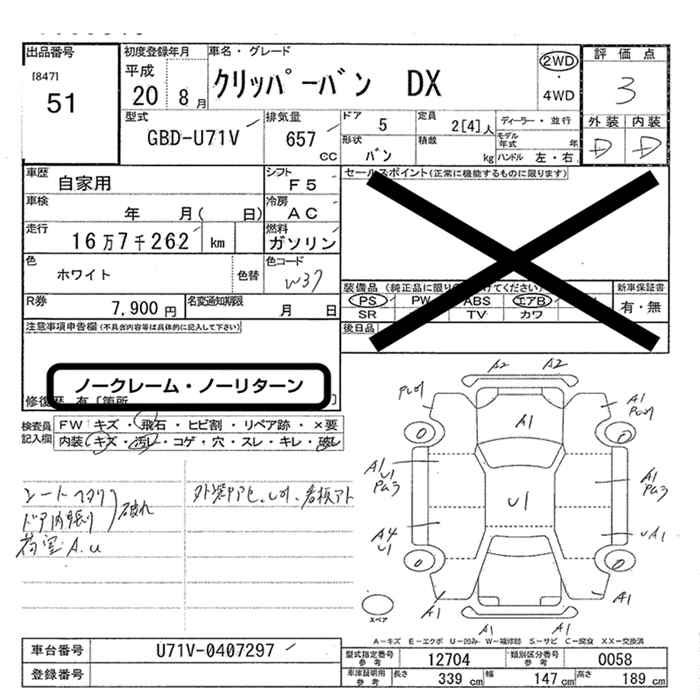 出品番号
[847]
51
初度登録年月
平成
20 8月
車名・グレード
クリッパーバン DX
2WD
・
4WD
評価点
3
外装 内装
D D
型式
GBD-U71V
排気量
657 cc
ドア 5
定員 2[4]人
ディーラー・並行
モデル年式 年
形状 バン
積載 kg
ハンドル 左・右
車歴
自家用
シフト
F5
セールスポイント(正常に機能するものに限ります)
車検
年 月( 日)
冷房
AC
走行
16万7千262 km
燃料
ガソリン
色
ホワイト
色替
色コード
W37
装備品(純正品に限り
けてください)
新車保証書
PS PW ABS エアB
SR TV カワ
有・無
R券
7,900円
名変通知期限
月 日
後日品
注意事項申告欄(不具合内容等は具体的に記入して下さい)
ノークレーム・ノーリターン
修復歴 有[箇所 ]
検査員記入欄
FW キズ・飛石・ヒビ割・リペア跡・×要
内装 キズ・汚レ・コゲ・穴・スレ・キレ・破レ
シートヘタリ
ドア内張り
破れ
荷室A.U
A2 A2
A1
A1
A1
U1
A1
U1
A1
A4
U1
UA1
A1 A1
A1 A1
スペア
A-キズ E-エクボ U-凹み W-補修跡 S-サビ C-腐食 XX-交換済
車台番号
U71V-0407297
登録番号
型式指定番号 参考
12704
類別区分番号 参考
0058
車庫証明用 参考
長さ 339 cm
幅 147 cm
高さ 189 cm